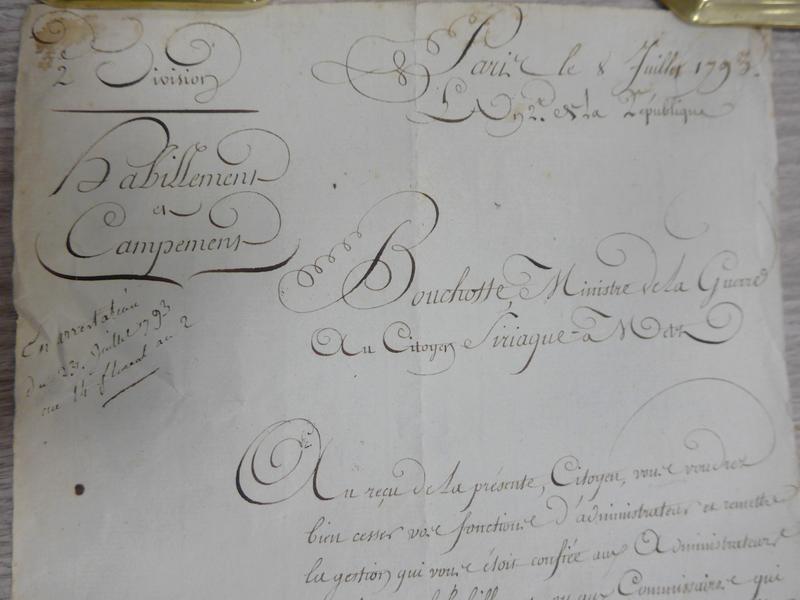 2e Division
Paris le 8 Juillet 1793.
L'An 2e. de la République
Habillement
et
Campement
Bouchotte, Ministre de la Guerre
Au Citoyen Siriaque à Metz
En arrestation
du 23 Juillet 1793
au 14 floreal an 2
Au reçu de la présente, Citoyen, vous voudrez
bien cesser vos fonctions d'administrateur et remettre
la gestion qui vous étoit confiée aux Administrateurs
ou aux Commissaires qui